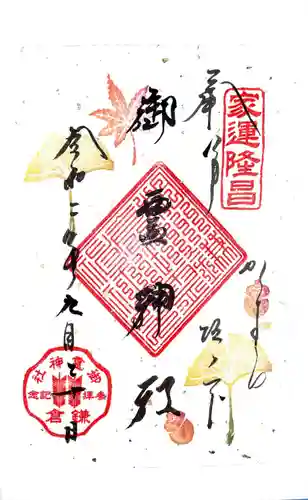 家運隆昌
奉拝
かまくら
坂ノ下
御霊神
令和二年九月
御霊神社
参拝記念
鎌倉